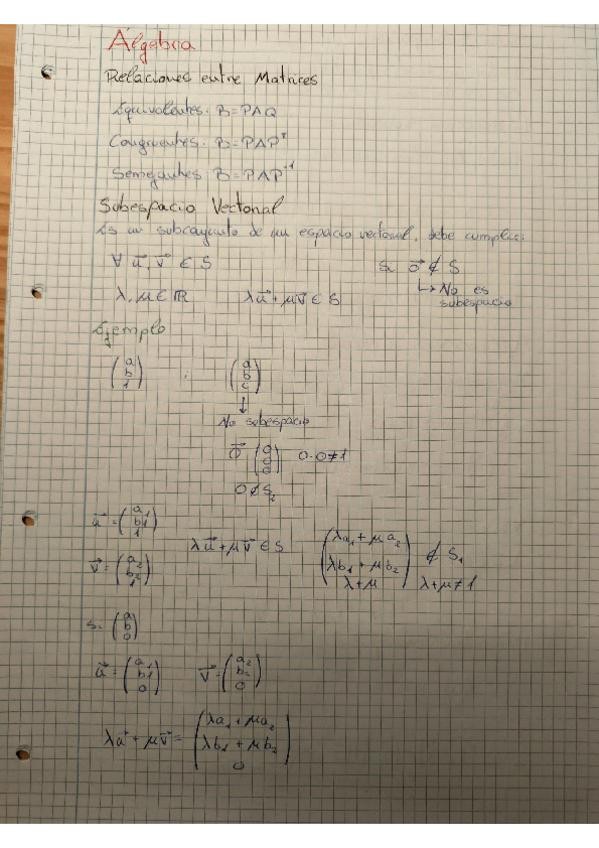 Álgebra
Relaciones entre Matrices
Equivalentes: B=PAQ
Congruentes: B=PAPᵀ
Semejantes: B=PAP⁻¹
Subespacio Vectorial
Es un subconjunto de un espacio vectorial, debe cumplir:
∀ u⃗, v⃗ ∈ S    Si 0⃗ ∉ S
λ, μ ∈ ℝ    λu⃗ + μv⃗ ∈ S    ↳ No es
subespacio
Ejemplo
(a b 1)    (a b c)
↓
No subespacio
0⃗ (0 0 0)    0·0≠1
0 ∉ S₂
u⃗ = (a₁ b₁ 1)    λu⃗ + μv⃗ ∈ S    (λa₁ + μa₂ λb₁ + μb₂ λ+μ) ∉ S₁
v⃗ = (a₂ b₂ 1)    λ+μ≠1
S. (a b 0)
u⃗ = (a₁ b₁ 0)    v⃗ = (a₂ b₂ 0)
λu⃗ + μv⃗ = (λa₁ + μa₂ λb₁ + μb₂ 0)